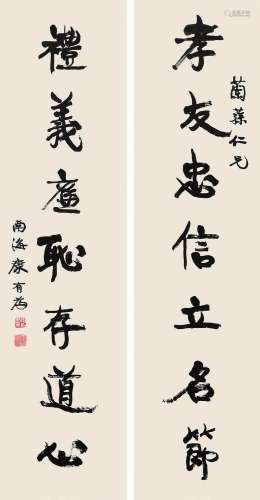 孝友忠信立名節
蘭蓀仁兄
禮義廉恥存道心
南海康有為